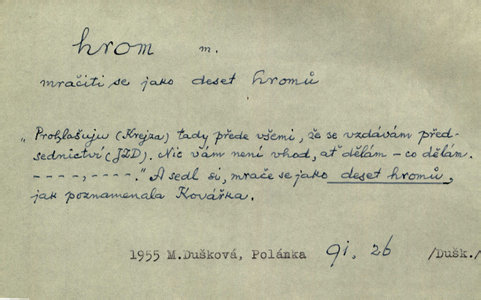 hrom m.
mračiti se jako deset hromů
„Prohlašuju (Krejza) tady přede všemi, že se vzdávám před-
sednictví (JZD). Nic vám není vhod, ať dělám – co dělám.
- - - -, - - - -.“ A sedl si, mrače se jako deset hromů,
jak poznamenala Kovářka.
1955 M.Dušková, Polánka 91, 26 /Dušk./